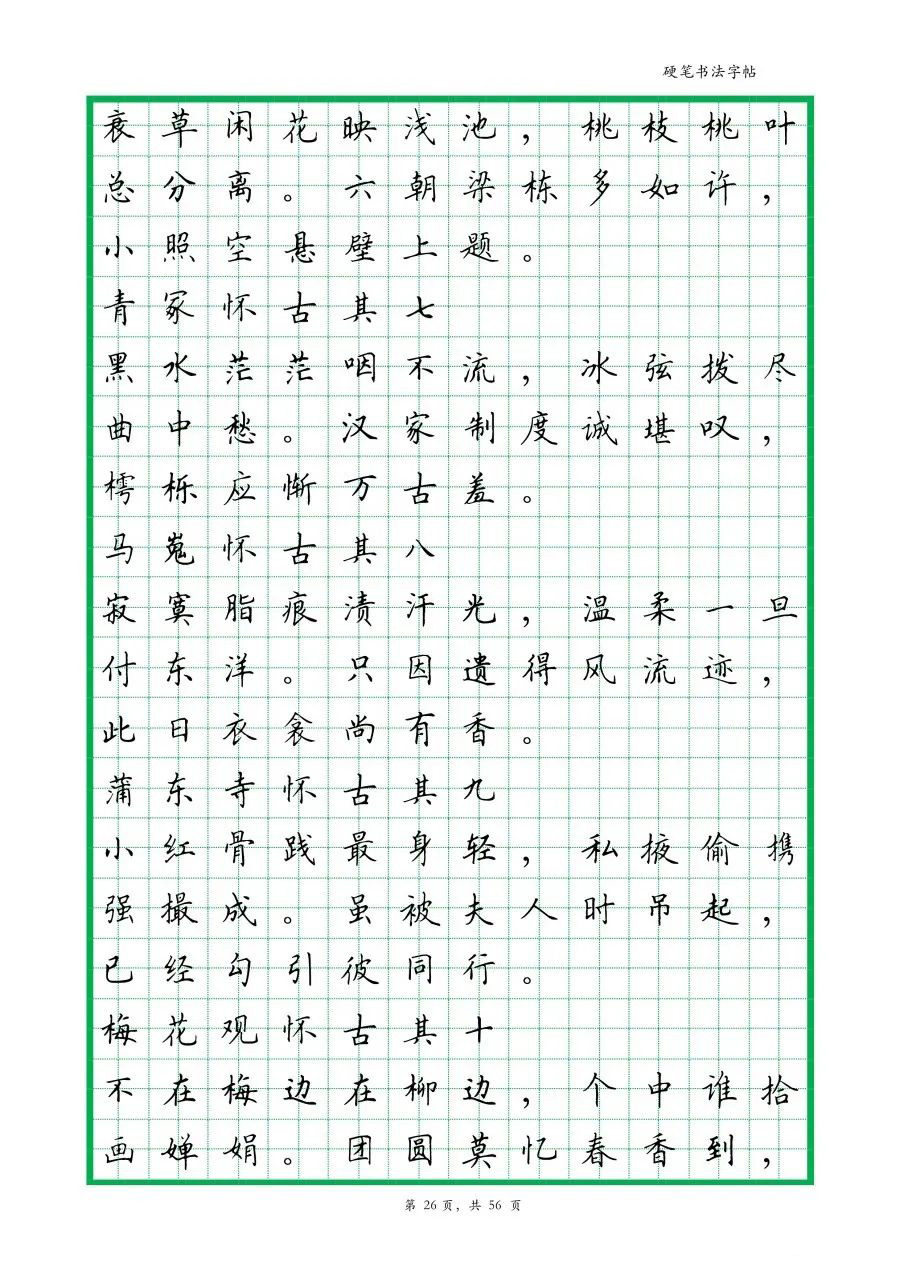 硬笔书法字帖
衰草闲花映浅池，桃枝桃叶
总分离。六朝梁栋多如许，
小照空悬壁上题。
青冢怀古其七
黑水茫茫咽不流，冰弦拨尽
曲中愁。汉家制度诚堪叹，
樗栎应惭万古羞。
马嵬怀古其八
寂寞脂痕渍汗光，温柔一旦
付东洋。只因遗得风流迹，
此日衣衾尚有香。
蒲东寺怀古其九
小红骨践最身轻，私掖偷携
强撮成。虽被夫人时吊起，
已经勾引彼同行。
梅花观怀古其十
不在梅边在柳边，个中谁拾
画婵娟。团圆莫忆春香到，
第 26 页，共 56 页